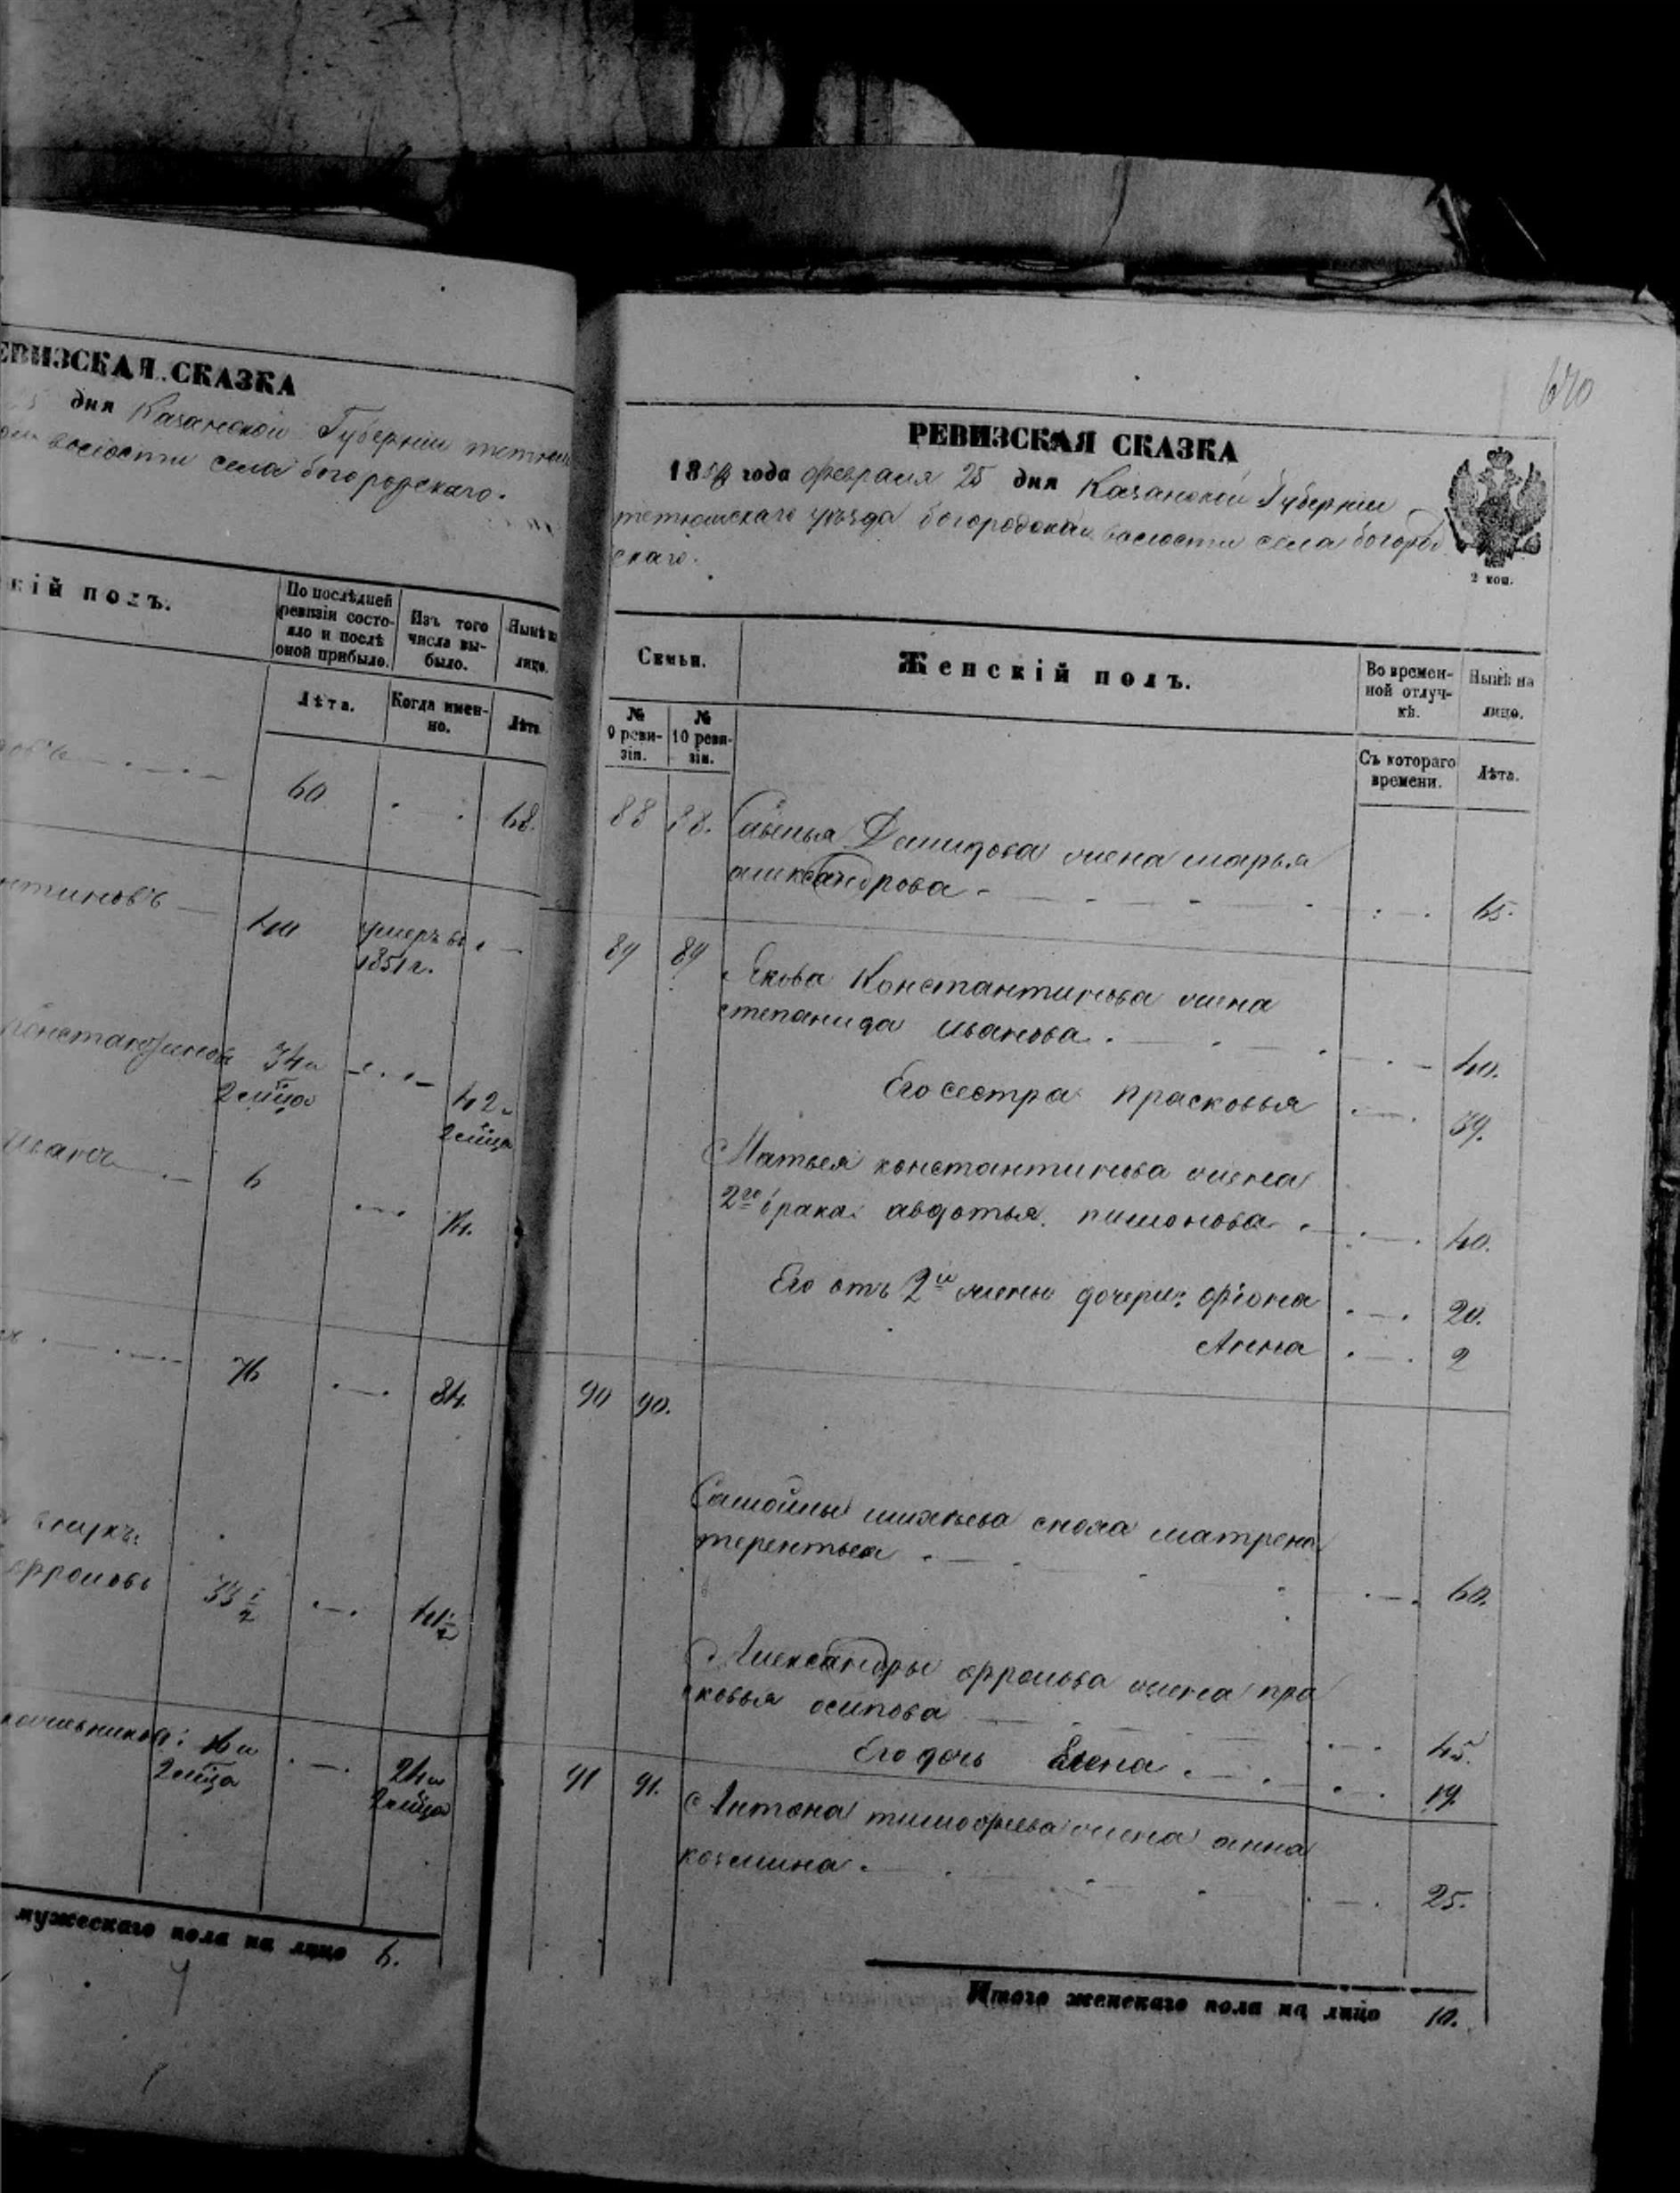 ЕВИЗСКАЯ СКАЗКА
дня Казанской Губернии тетюш
волости села богородскаго.
кій полъ.
По послѣдней ревизіи состояло и послѣ оной прибыло.
Изъ того числа выбыло.
Нынѣ на лицо.
Лѣта.
Когда именно.
Лѣта
60 68.
нтиновъ 40 умеръ въ
1851 г.
константинов 34 и
2 мѣца
42 и
2 мѣца
Иванъ 6 14.
76 84.
внукъ
ѳроловъ 33 1/2 41 1/2
16 и
2 мѣца
24 и
2 мѣца
мужескаго пола на лицо 6.
670
РЕВИЗСКАЯ СКАЗКА
1858 года февраля 25 дня Казанской Губернии
тетюшскаго уѣзда богородской волости села богород
скаго.
2 коп.
Семьи.
Женскій полъ.
Во временной отлучкѣ.
Нынѣ на лицо.
№ 9 ревизіи.
№ 10 ревизіи.
Съ котораго времени.
Лѣта.
88 88. Савелья Демидова жена марья
александрова 65.
89 89 Якова Константинова жена
степанида Иванова. 40.
Его сестра прасковья 39.
Матвея константинова жена
2го брака авдотья пимонова 40.
Его отъ 2й жены дочери: фіона 20.
Анна 2
90 90.
Самойлы михѣева сноха матрена
терентьева 60.
Александры ѳролова жена пра
сковья осипова 45.
Его дочь Елена 19.
91 91. Антона тимофеева жена анна
козмина 25.
Итого женскаго пола на лицо 10.